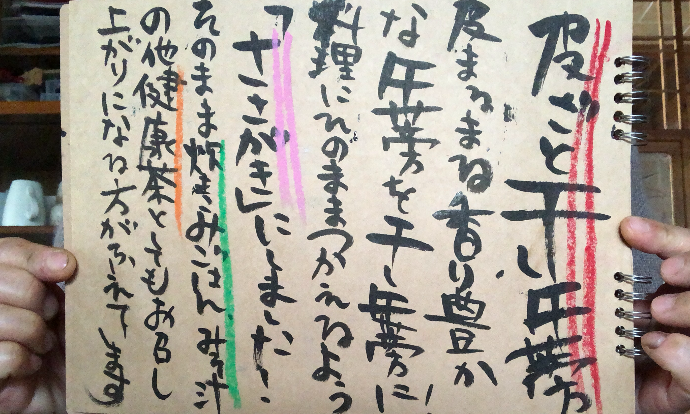 皮ごと干し牛蒡
皮まるまる香り豊か
な牛蒡を干し牛蒡に!
料理にそのままつかえるよう
「ささがき」にしました!!
そのまま炊きみごはん みそ汁
の他健康茶としてもお召し
上がりになる方がふえてます